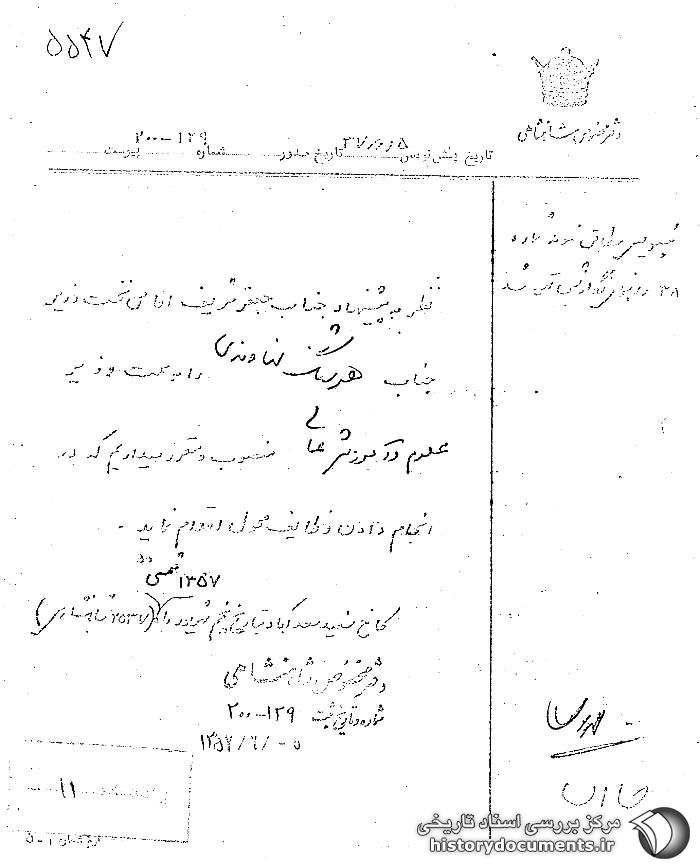 ۵۵۴۷
دفتر مخصوص شاهنشاهی
تاریخ پیش‌نویس ۳۷/۶/۵ تاریخ صدور شماره ۱۲۹-۲۰۰ پیوست
نظر به پیشنهاد جناب جعفر شریف امامی نخست وزیر
جناب هوشنگ نهاوندی را به سمت وزیر
علوم و آموزش عالی منصوب و مقرر میداریم که در
انجام دادن وظایف محول اقدام نماید.
۱۳۵۷ شمسی
کاخ سفید سعدآباد بتاریخ پنجم شهریور ماه (۲۵۳۷ شاهنشاهی)
دفتر مخصوص شاهنشاهی
شماره و تاریخ ثبت ۱۲۹-۲۰۰
۱۳۵۷/۶/۰۵
۱۱
مرکز بررسی اسناد تاریخی
historydocuments.ir